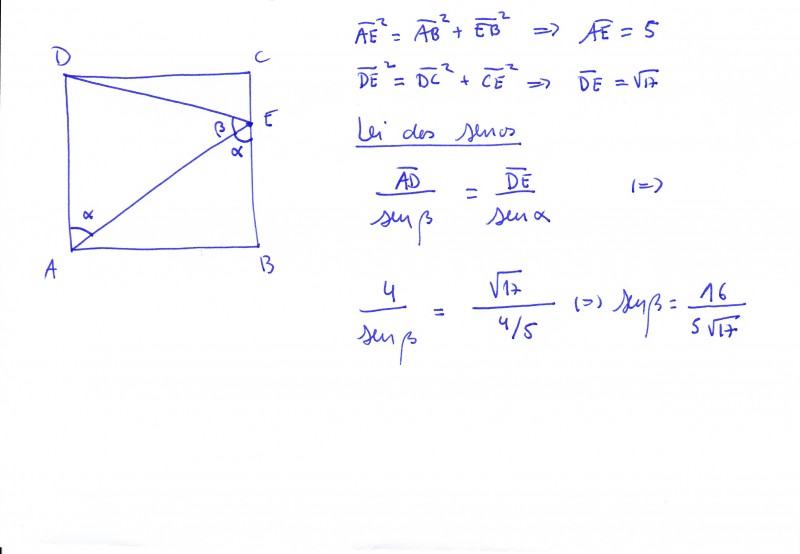 D C
E
β
α
α
A B
A̅E̅² = A̅B̅² + E̅B̅² => A̅E̅ = 5
D̅E̅² = D̅C̅² + C̅E̅² => D̅E̅ = √17
Lei dos senos
A̅D̅/sen β = D̅E̅/sen α (=>
4/sen β = √17/(4/5) (=> sen β = 16/(5√17)